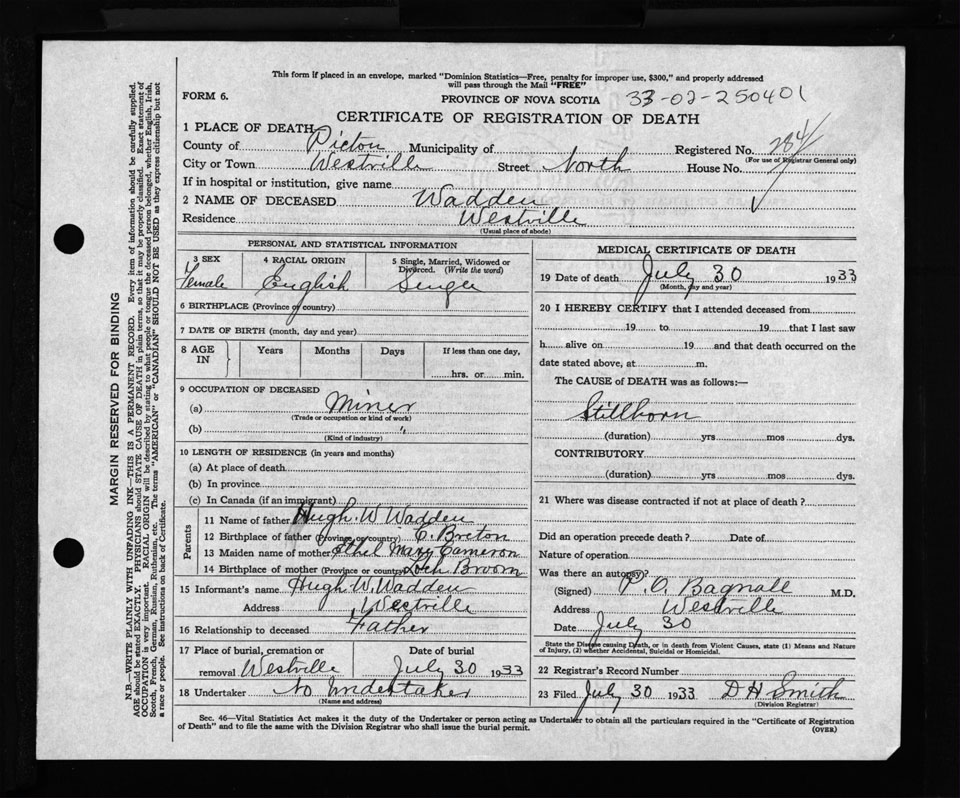 This form if placed in an envelope, marked "Dominion Statistics—Free, penalty for improper use, $300," and properly addressed
will pass through the Mail "FREE"
FORM 6.
PROVINCE OF NOVA SCOTIA 33-02-250401
CERTIFICATE OF REGISTRATION OF DEATH
1 PLACE OF DEATH
County of Pictou Municipality of Registered No. 284
(For use of Registrar General only)
City or Town Westville Street North House No.
If in hospital or institution, give name
2 NAME OF DECEASED Wadden
Residence Westville
(Usual place of abode)
PERSONAL AND STATISTICAL INFORMATION
3 SEX 4 RACIAL ORIGIN 5 Single, Married, Widowed or Divorced. (Write the word)
Female English Single
6 BIRTHPLACE (Province or country)
7 DATE OF BIRTH (month, day and year)
8 AGE IN Years Months Days If less than one day,
hrs. or min.
9 OCCUPATION OF DECEASED
(a) Miner
(Trade or occupation or kind of work)
(b) "
(Kind of industry)
10 LENGTH OF RESIDENCE (in years and months)
(a) At place of death
(b) In province
(c) In Canada (if an immigrant)
Parents
11 Name of father Hugh W Wadden
12 Birthplace of father (Province or country) C. Breton
13 Maiden name of mother Ethel Mary Cameron
14 Birthplace of mother (Province or country) Loch Broom
15 Informant's name Hugh W. Wadden
Address Westville
16 Relationship to deceased Father
17 Place of burial, cremation or removal Westville
Date of burial July 30 1933
18 Undertaker No Undertaker
(Name and address)
MEDICAL CERTIFICATE OF DEATH
19 Date of death July 30 1933
(Month, day and year)
20 I HEREBY CERTIFY that I attended deceased from
19 to 19 that I last saw
h alive on 19 and that death occurred on the
date stated above, at m.
The CAUSE of DEATH was as follows:—
Stillborn
(duration) yrs mos dys.
CONTRIBUTORY
(duration) yrs mos dys.
21 Where was disease contracted if not at place of death ?
Did an operation precede death ? Date of
Nature of operation
Was there an autopsy?
(Signed) P. O. Bagnall M.D.
Address Westville
Date July 30
State the Disease causing Death, or in death from Violent Causes, state (1) Means and Nature
of Injury, (2) whether Accidental, Suicidal or Homicidal.
22 Registrar's Record Number
23 Filed July 30 1933 D H Smith
(Division Registrar)
Sec. 46—Vital Statistics Act makes it the duty of the Undertaker or person acting as Undertaker to obtain all the particulars required in the "Certificate of Registration
of Death" and to file the same with the Division Registrar who shall issue the burial permit.
(OVER)
MARGIN RESERVED FOR BINDING
N.B.—WRITE PLAINLY WITH UNFADING INK—THIS IS A PERMANENT RECORD. Every item of information should be carefully supplied.
AGE should be stated EXACTLY. PHYSICIANS should STATE CAUSE OF DEATH in plain terms, so that it may be properly classified. Exact statement of
OCCUPATION is very important. RACIAL ORIGIN will be described by stating to what people or tongue the deceased person belonged, whether English, Irish,
Scotch, French, German, Russian, Ruthenian, etc. The terms "AMERICAN" or "CANADIAN" SHOULD NOT BE USED as they express citizenship but not
a race or people. See instructions on back of Certificate.